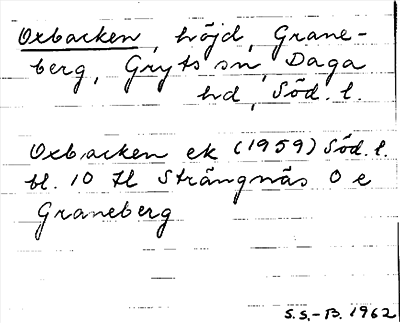 Oxbacken, höjd, Grane-
berg, Gryts sn, Daga
hd, Söd. l.
Oxbacken ek (1959) Söd. l.
bl. 10 Strängnäs O e
Graneberg
S.S.-B. 1962